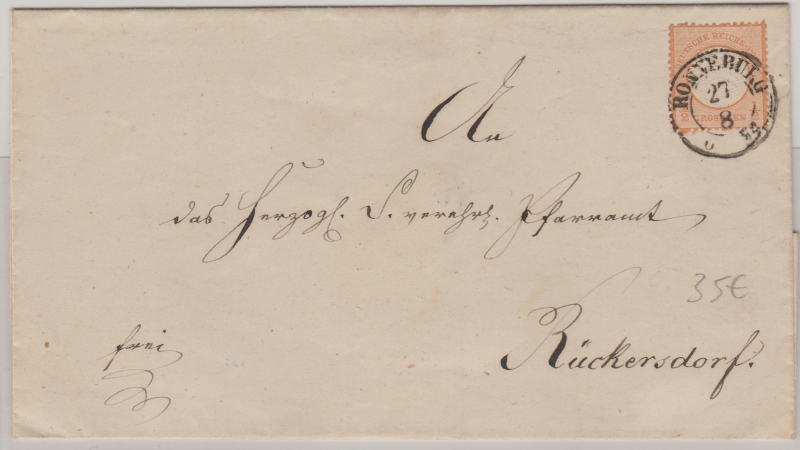 DEUTSCHE REICHS
GROSCHEN
RONNEBURG
27
8
An
das Herzogl. S. verehrl. Pfarramt
35€
frei
Rückersdorf.